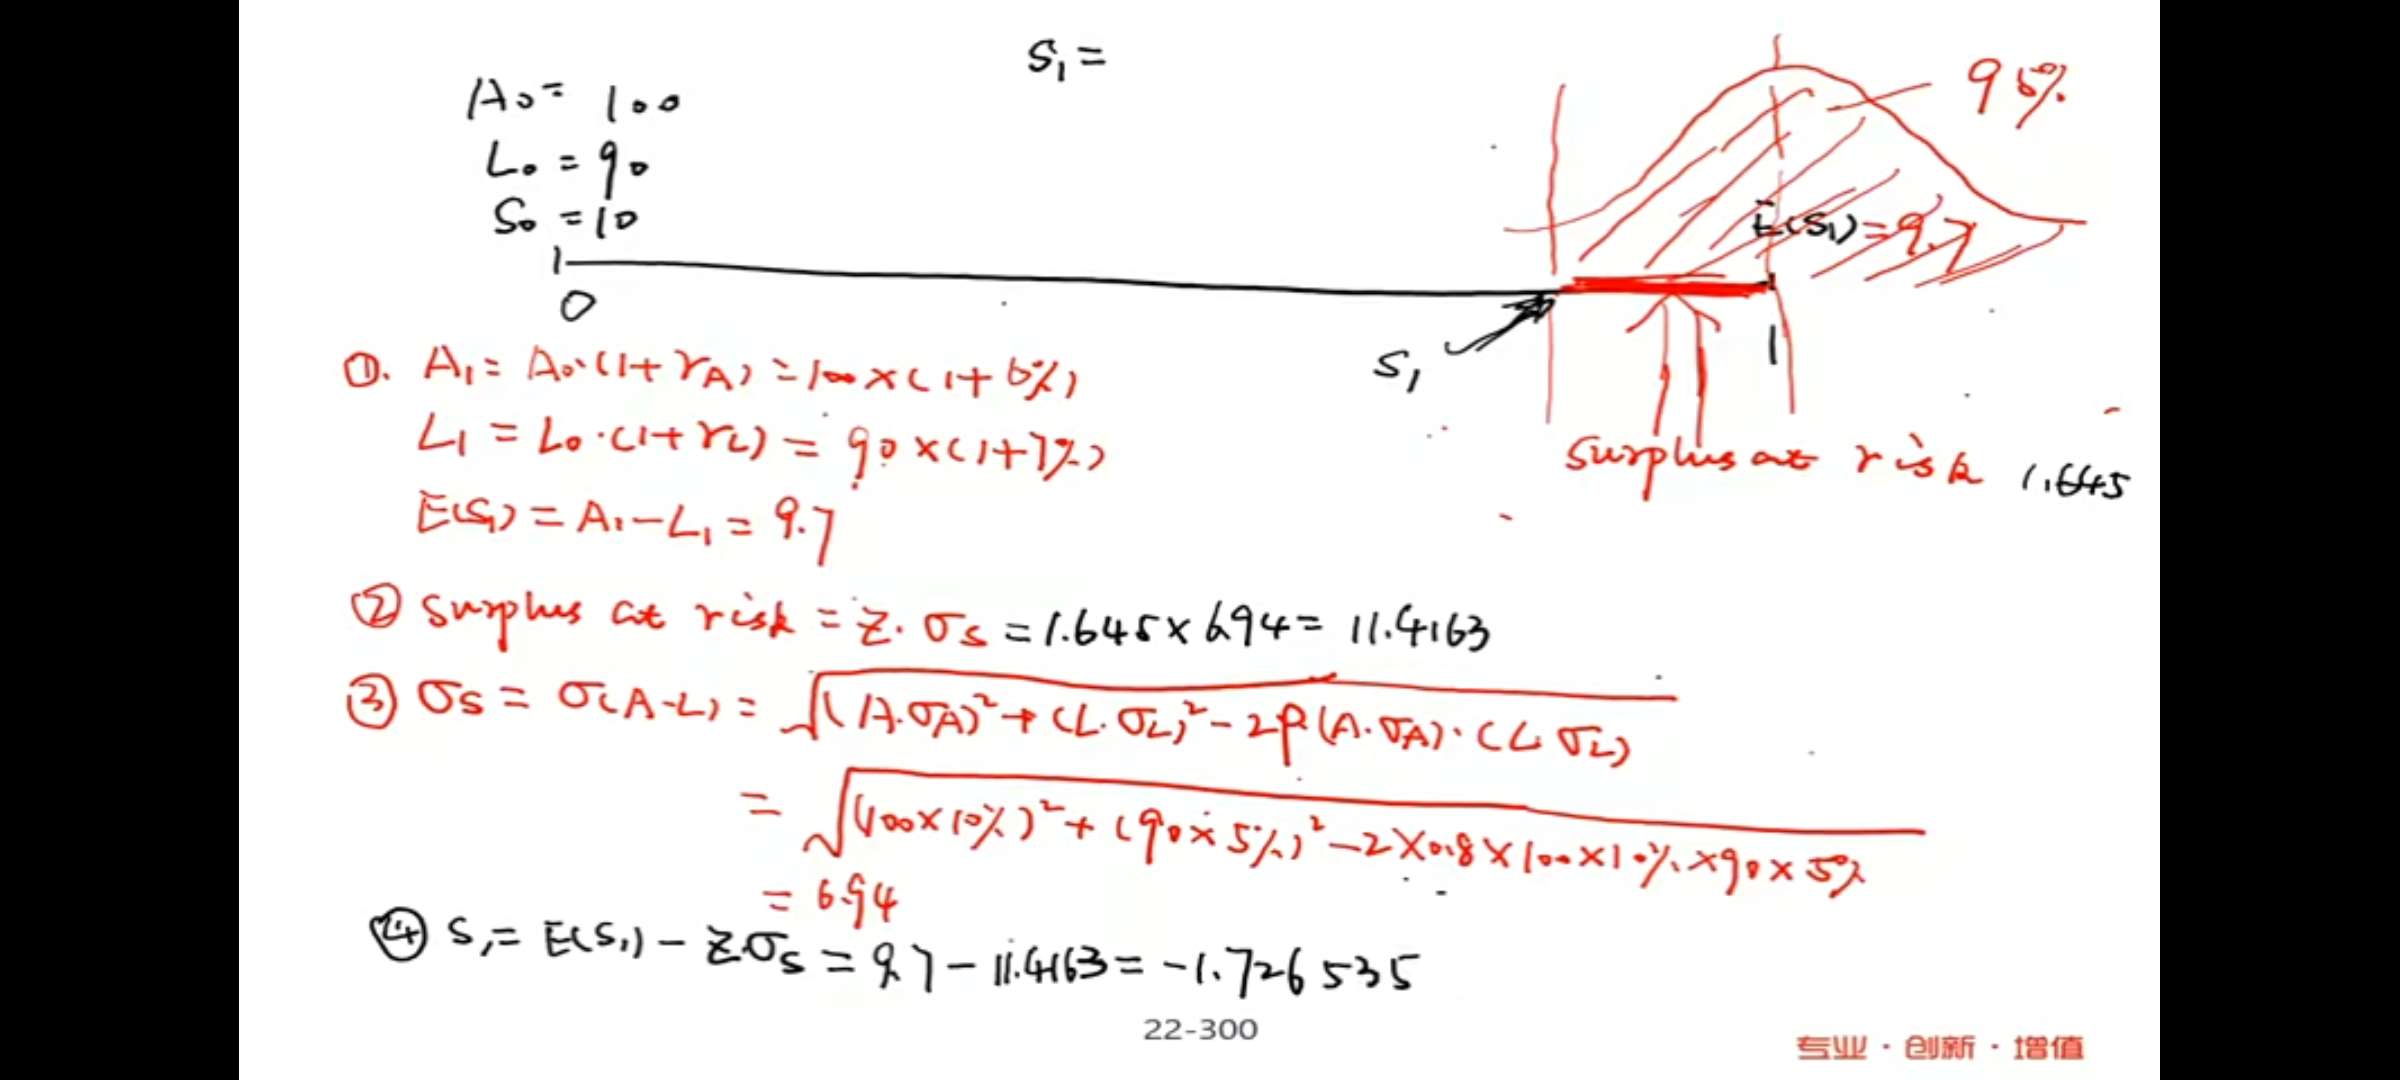 S₁ =
A₀ = 100
L₀ = 90
S₀ = 10
95%
E(S₁) = 9.7
0
S₁
1
①. A₁ = A₀·(1+r_A) = 100×(1+6%)
L₁ = L₀·(1+r_L) = 90×(1+7%)
surplus at risk 1.645
E(S₁) = A₁-L₁ = 9.7
② surplus at risk = z·σs = 1.645×6.94 = 11.4163
③ σs = σ(A-L) = √(A·σA)²+(L·σL)²-2ρ(A·σA)·(L·σL)
= √(100×10%)²+(90×5%)²-2×0.8×100×10%×90×5%
= 6.94
④ S₁ = E(S₁) - z·σs = 9.7-11.4163 = -1.726535
22-300
专业·创新·增值